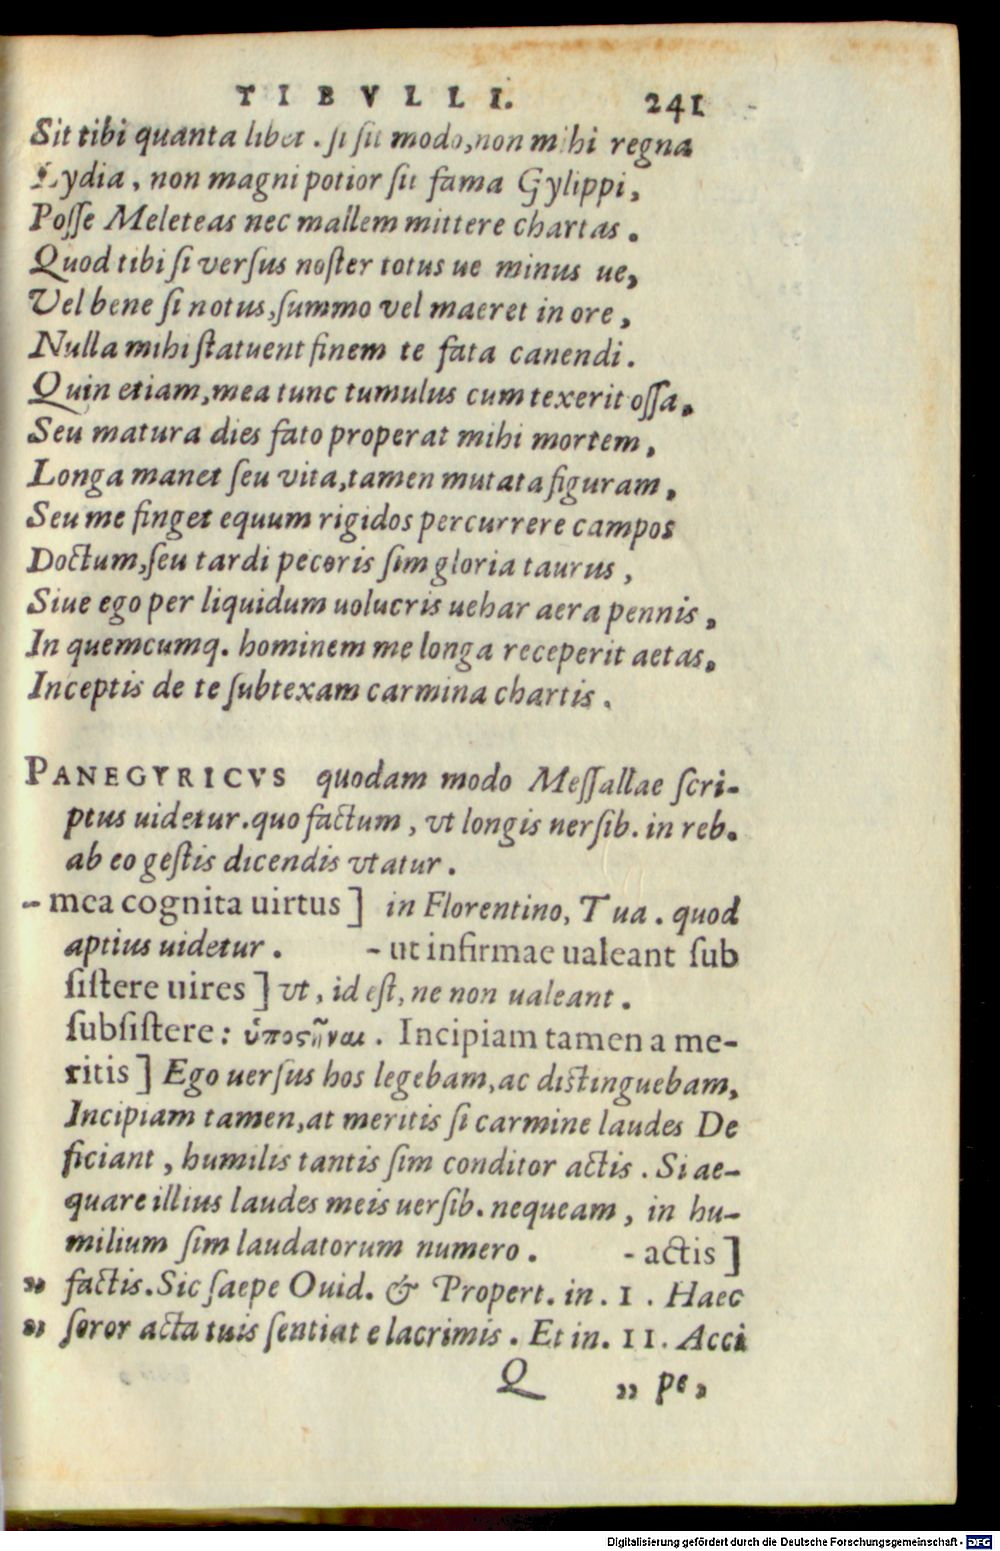 TIBVLLI. 241
Sit tibi quanta libet. si sit modo, non mihi regna
Lydia, non magni potior sit fama Gylippi,
Posse Meleteas nec mallem mittere chartas.
Quod tibi si versus noster totus ue minus ue,
Vel bene si notus, summo vel maeret in ore,
Nulla mihi statuent finem te fata canendi.
Quin etiam, mea tunc tumulus cum texerit ossa,
Seu matura dies fato properat mihi mortem,
Longa manet seu vita, tamen mutata figuram,
Seu me finget equum rigidos percurrere campos
Doctum, seu tardi pecoris sim gloria taurus,
Siue ego per liquidum uolucris uehar aera pennis,
In quemcumq. hominem me longa receperit aetas,
Inceptis de te subtexam carmina chartis.
PANEGYRICVS quodam modo Messallae scri-
ptus uidetur. quo factum, vt longis uersib. in reb.
ab eo gestis dicendis vtatur.
- mea cognita uirtus] in Florentino, Tua. quod
aptius uidetur. - ut infirmae ualeant sub
sistere uires] vt, id est, ne non ualeant.
subsistere: ὑποςῆναι. Incipiam tamen a me-
ritis] Ego uersus hos legebam, ac distinguebam,
Incipiam tamen, at meritis si carmine laudes De
ficiant, humilis tantis sim conditor actis. Si ae-
quare illius laudes meis uersib. nequeam, in hu-
milium sim laudatorum numero. - actis]
" factis. Sic saepe Ouid. & Propert. in. I. Haec
" soror acta tuis sentiat e lacrimis. Et in. II. Acci
Q " pe,
Digitalisierung gefördert durch die Deutsche Forschungsgemeinschaft - DFG